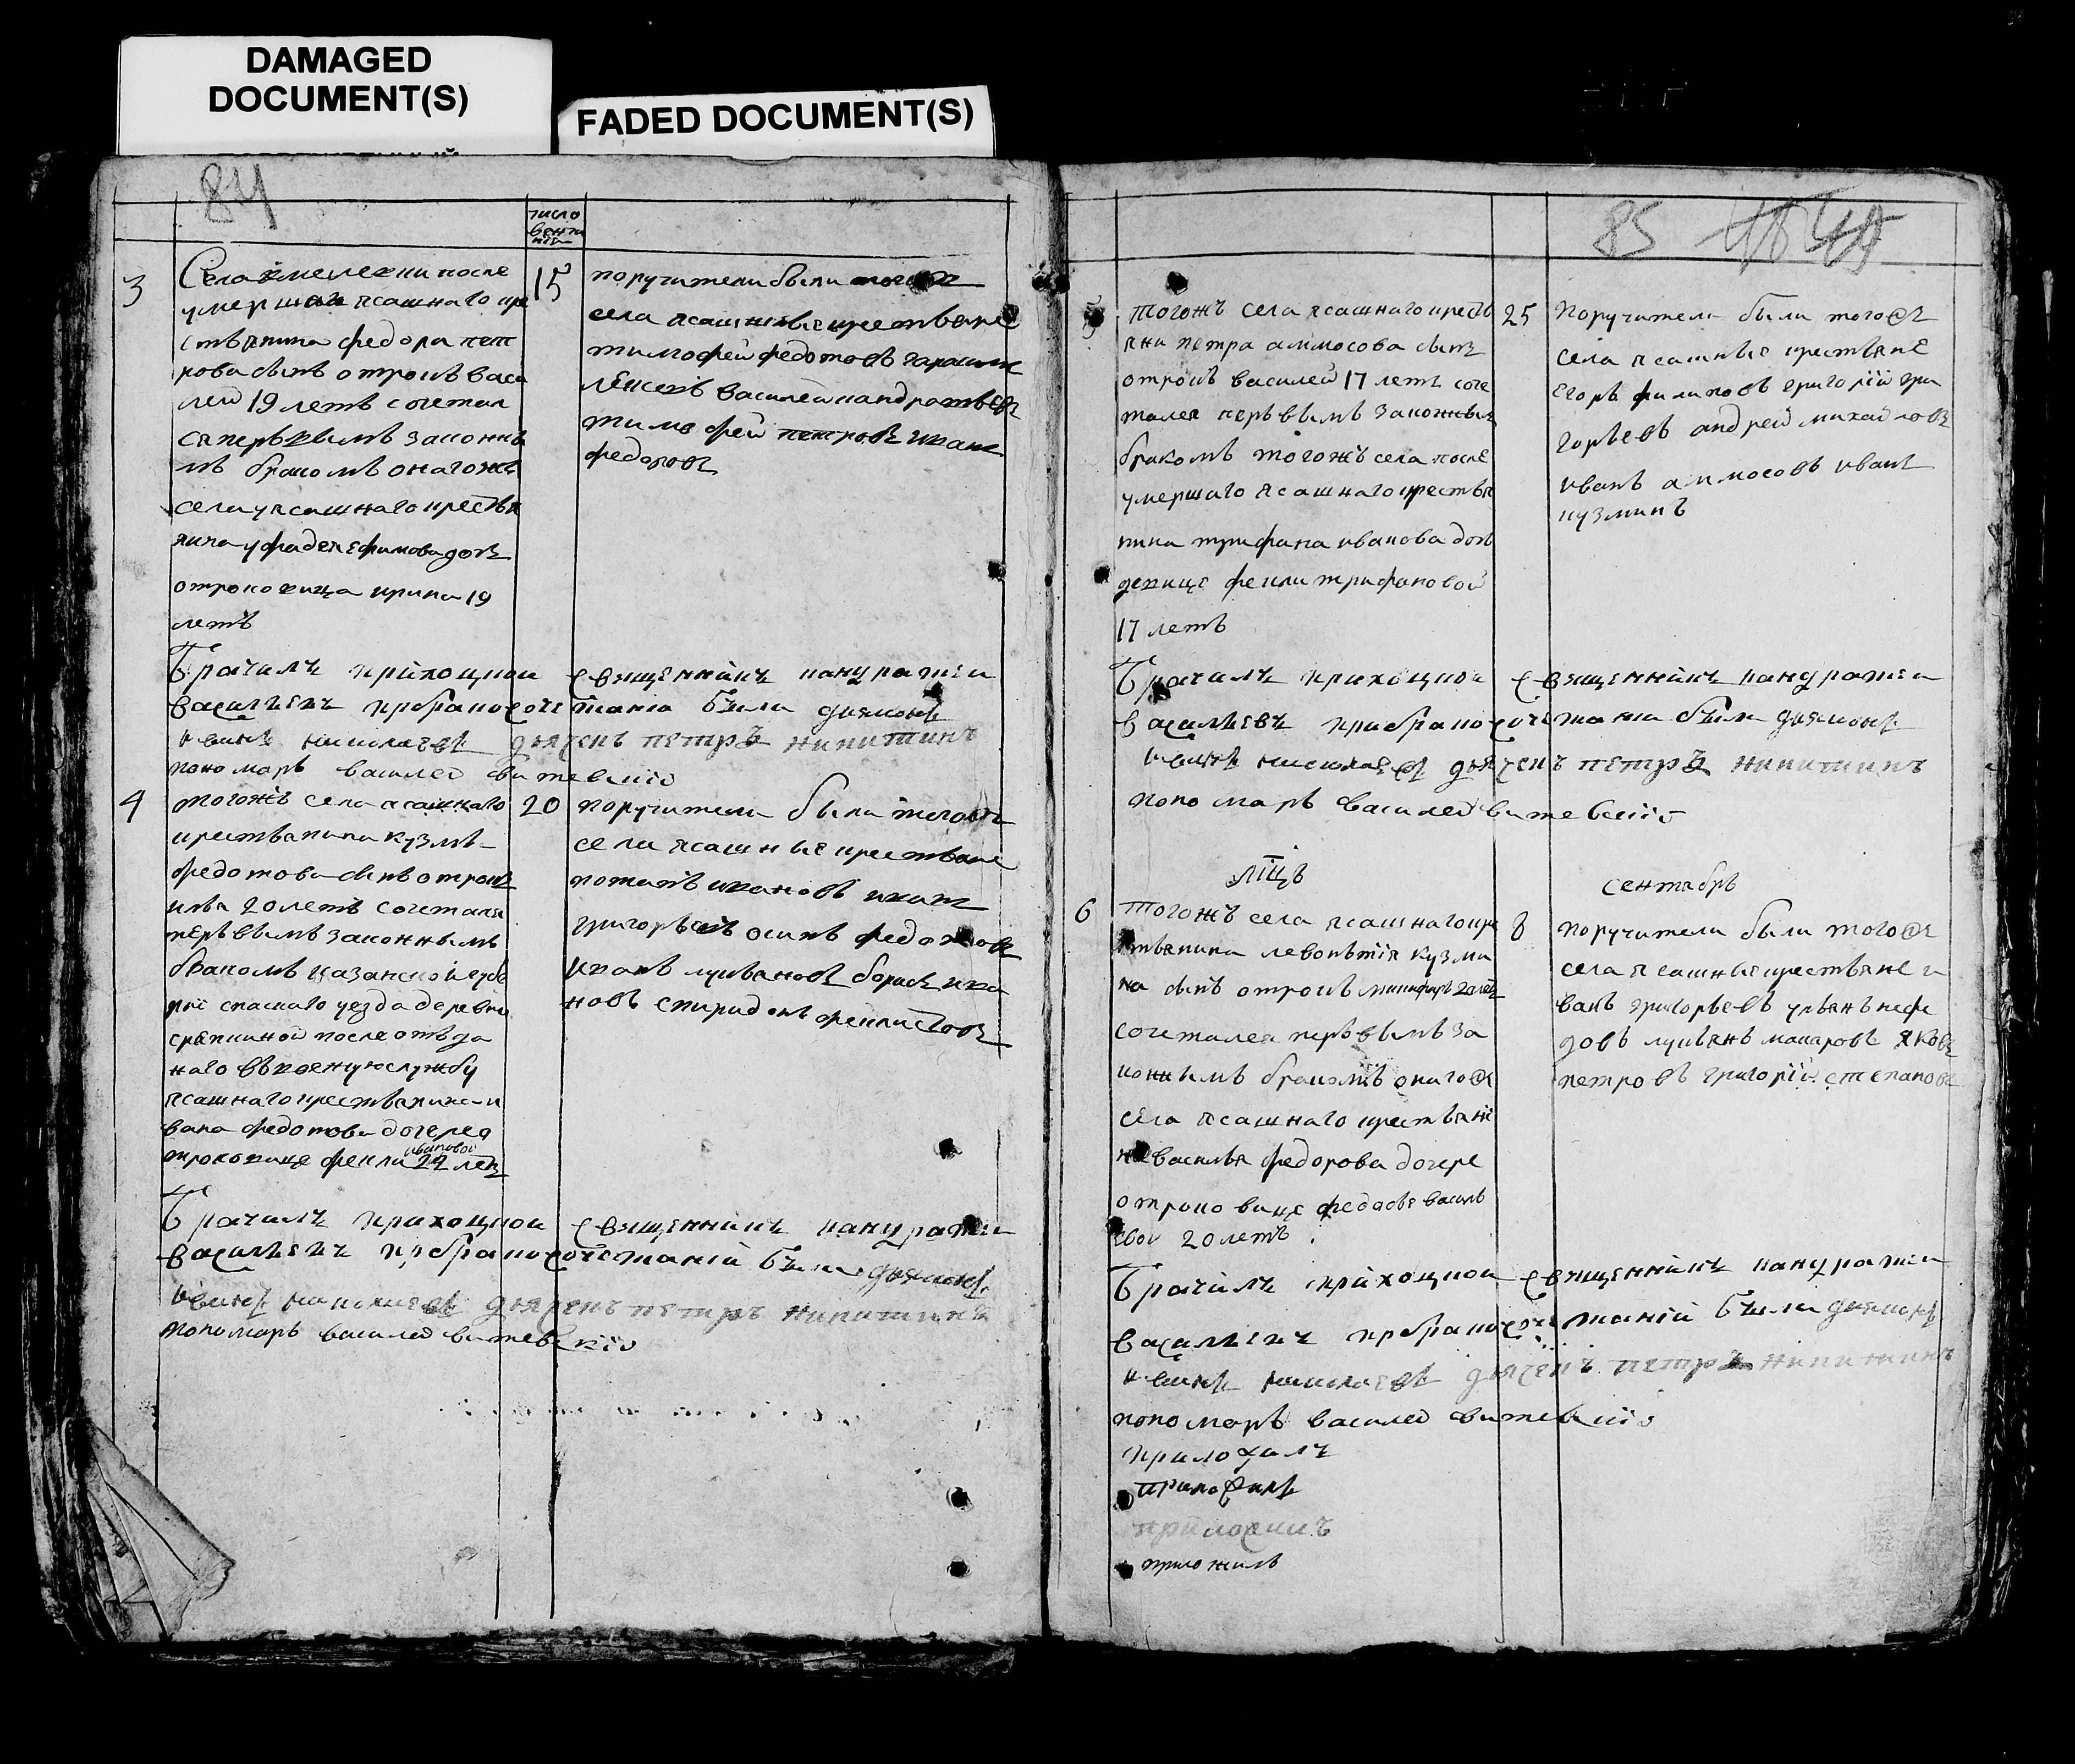 DAMAGED
DOCUMENT(S)
FADED DOCUMENT(S)
84
число
венча
нія
3
Села хмелевки после
умершаго ясашнаго кре
стьянина федора пет
рова сынъ отрокъ васи
лей 19 летъ сочетал
ся первымъ законны
мъ бракомъ онагожъ
села у ясашнаго крестья
нина у фадея ефимова дочь
отроковица ирина 19
летъ
15
поручители были тогожъ
села ясашные крестьяне
тимофей федотовъ
василей кандратьевъ
тимофей петровъ иванъ
федоровъ
Брачилъ приходцкои священникъ кандратеи
васильевъ при бракосочетании были дьяконъ
иванъ николаевъ дьячекъ петръ никитинъ
пономарь василей витевскій
4
тогожъ села ясашнаго
крестьянина кузмы
федотова сынъ отрокъ
илья 20 летъ сочетался
первымъ законнымъ
бракомъ казанской губе
рніи спаскаго уезда деревни
после отъда
наго въ военную службу
ясашнаго крестьянина и
вана федотова дочерео
троковице фекли ивановой 22 летъ
20
поручители были тогожъ
села ясашные крестьяне
потапъ ивановъ иванъ
григорьевъ осипъ федотовъ
иванъ лукьяновъ борисъ ива
новъ спиридонъ феклистовъ
Брачилъ приходцкои священникъ кандратеи
васильевъ при бракосочетании были дьяконъ
иванъ николаевъ дьячекъ петръ никитинъ
пономарь василей витевскій
85
5
тогожъ села ясашнаго кресть
яни петра аммосова сынъ
отрокъ василей 17 летъ соче
тался первымъ законнымъ
бракомъ тогожъ села после
умершаго ясашнаго крестья
нина трифана иванова доч
девице фекли трифановой
17 летъ
25
поручители были тогожъ
села ясашные крестьяне
егоръ филиповъ григорій гри
горьевъ андрей михайловъ
иванъ аммосовъ иванъ
кузминъ
Брачилъ приходцкои священникъ кандратеи
васильевъ при бракосочетании были дьяконъ
иванъ николаевъ дьячекъ петръ никитинъ
пономарь василей витевскій
мцъ
сентябрь
6
тогожъ села ясашнаго кре
стьянина левонътія кузми
на сынъ отрокъ никифоръ 20 летъ
сочетался первымъ за
коннымъ бракомъ онагожъ
села ясашнаго крестьяни
на василья федорова дочере
отроковице федосье василь
евой 20 летъ
8
поручители были тогожъ
села ясашные крестьяне и
ванъ григорьевъ ульянъ нефе
довъ лукьянъ макаровъ яковъ
петровъ григорій степановъ
Брачилъ приходцкои священникъ кандратеи
васильевъ при бракосочетании были дьяконъ
иванъ николаевъ дьячекъ петръ никитинъ
пономарь василей витевскій
приложилъ
приложилъ
приложилъ
приложилъ